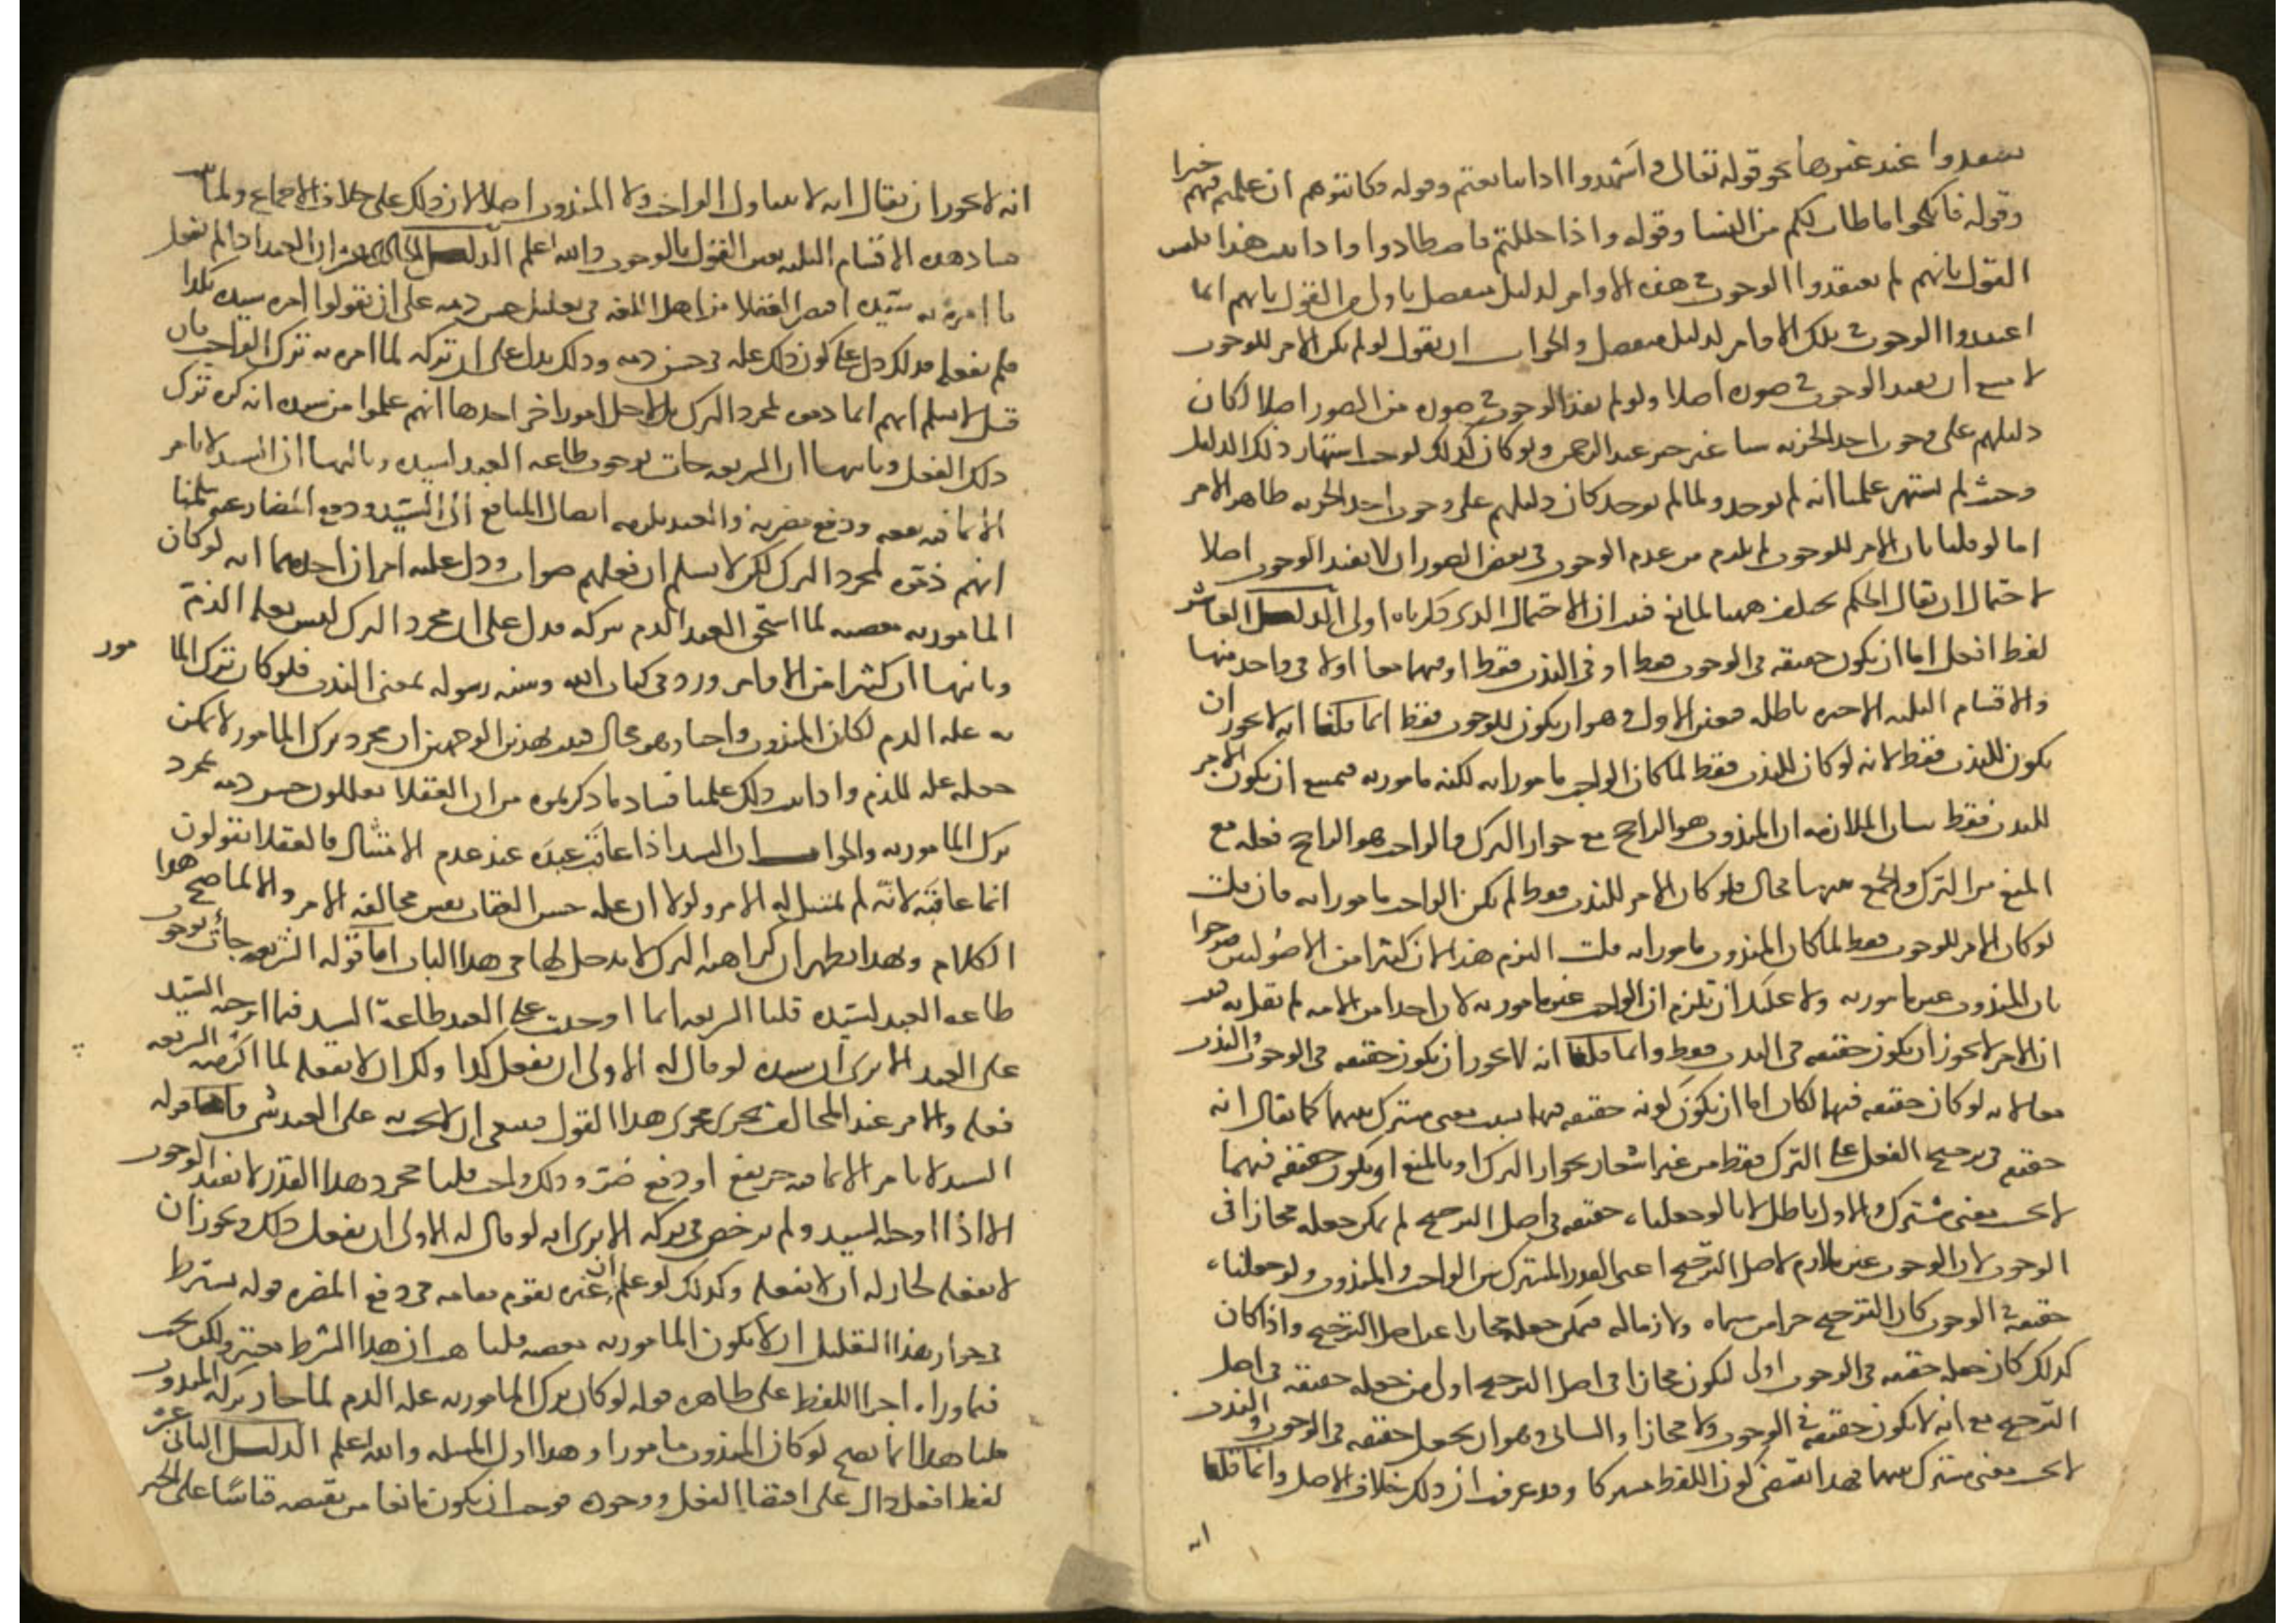 يعتقدوا عند غيرها نحو قوله تعالى واشهدوا اذا تبايعتم وقوله فكاتبوهم ان علمتم فيهم خيرا
وقوله فانكحوا ما طاب لكم من النسا وقوله واذا حللتم فاصطادوا واذا ثبت هذا فليس
القول بانهم لم يعتقدوا الوجوب في هذه الاوامر لدليل منفصل باولى من القول بانهم انما
اعتقدوا الوجوب في تلك الاوامر لدليل منفصل والجواب ان نقول لو لم يكن الامر للوجوب
لامتنع ان يفيد الوجوب في صورة اصلا ولو لم يفد الوجوب في صورة من الصور اصلا لكان
دليلهم على وجوب اخذ الجزية شيا غير خبر عبد الرحمن ولو كان كذلك لوجب اشتهار ذلك الدليل
وحيث لم يشتهر علمنا انه لم يوجد ولما لم يوجد كان دليلهم على وجوب اخذ الجزية ظاهر الامر
اما لو قلنا بان الامر للوجوب لم يلزم من عدم الوجوب في بعض الصور ان لا يفيد الوجوب اصلا
لاحتمال ان يقال الحكم تخلف ههنا لمانع فثبت ان الاحتمال الذي ذكرناه اولى الدليل العاشر
لفظ افعل اما ان يكون حقيقة في الوجوب فقط او في الندب فقط او فيهما معا او لا في واحد منهما
والاقسام الثلثة الاخيرة باطلة فتعين الاول وهو ان يكون للوجوب فقط انما قلنا انه لا يجوز ان
يكون للندب فقط لانه لو كان للندب فقط لما كان الواجب مامورا به لكنه مامور به فيمتنع ان يكون الامر
للندب فقط بيان الملازمة ان المندوب هو الراجح مع جواز الترك والواجب هو الراجح فعله مع
المنع من الترك والجمع بينهما محال فلو كان الامر للندب فقط لم يكن الواجب مامورا به فان قلت
لو كان الامر للوجوب فقط لما كان المندوب مامورا به قلت التزم هذا لان كثيرا من الاصوليين صرحوا
بان المندوب غير مامور به ولا يمكنك ان تلتزم ان الواجب غير مامور به لان احدا من الامة لم يقل به فثبت
ان الامر لا يجوز ان يكون حقيقة في الندب فقط وانما قلنا انه لا يجوز ان يكون حقيقة في الوجوب والندب
معا لانه لو كان حقيقة فيهما لكان اما ان يكون كونه حقيقة فيهما بسبب معنى مشترك بينهما كما يقال انه
حقيقة في ترجيح الفعل على الترك فقط من غير اشعار بجواز الترك او بالمنع او يكون حقيقة فيهما
لا بحسب معنى مشترك والاول باطل لانا لو جعلناه حقيقة في اصل الترجيح لم يمكن جعله مجازا في
الوجوب لان الوجوب غير لازم لاصل الترجيح اعني القدر المشترك بين الواجب والمندوب ولو جعلناه
حقيقة في الوجوب كان الترجيح جزا من مسماه ولازما له فيمكن جعله مجازا عن اصل الترجيح واذا كان
كذلك كان جعله حقيقة في الوجوب اولى ليكون مجازا في اصل الترجيح اولى من جعله حقيقة في اصل
الترجيح مع انه لا يكون حقيقة في الوجوب ولا مجازا والثاني وهو ان يجعل حقيقة في الوجوب والندب
لا بحسب معنى مشترك بينهما فهذا يقتضي كون اللفظ مشتركا وقد عرفت ان ذلك خلاف الاصل وانما قلنا
انه
انه لا يجوز ان يقال انه لا يتناول الواجب ولا المندوب اصلا لان ذلك على خلاف الاجماع ولما ثبت
فساد هذه الاقسام الثلثة تعين القول بالوجوب والله اعلم الدليل الحادي عشر ان العبد اذا لم يفعل
ما امره به سيده اقتصر العقلا من اهل اللغة في تعليل حسن ذمه على ان يقولوا امره سيده بكذا
فلم يفعله فدل ذلك على كون ذلك علة في حسن ذمه وذلك يدل على ان تركه لما امر به ترك الواجب فان
قيل لا نسلم انهم انما ذموه لمجرد الترك بل لاجل امور اخر احدها انهم علموا من سيده انه كره ترك
ذلك الفعل وثانيها ان الشريعة جات بوجوب طاعة العبد لسيده وثالثها ان السيد لا يامر
الا بما فيه نفعه ودفع مضرته والعبد يلزمه ايصال المنافع الى السيد ودفع المضار عنه سلمنا
انهم ذموه لمجرد الترك لكن لا نسلم ان فعلهم صواب ودل عليه امران احدهما انه لو كان
المامور به معصية لما استحق العبد الذم بتركه فدل على ان مجرد الترك ليس بعلة الذم
وثانيها ان كثيرا من الاوامر ورد في كتاب الله وسنة رسوله بمعنى الندب فلو كان ترك المامور
به علة الذم لكان المندوب واجبا وهو محال فثبت بهذين الوجهين ان مجرد ترك المامور لا يمكن
جعله علة للذم واذا ثبت ذلك علمنا فساد ما ذكرتموه من ان العقلا يعللون حسن ذمه بمجرد
ترك المامور به والجواب ان السيد اذا عاتب عبده عند عدم الامتثال فالعقلا يقولون
انما عاقبه لانه لم يمتثل له الامر ولولا ان علة حسن العقاب نفس مخالفة الامر والا لما صح هذا
الكلام وبهذا يظهر ان كراهة الترك لا مدخل لها في هذا الباب اما قوله الشريعة جات بوجوب
طاعة العبد لسيده قلنا الشريعة انما اوجبت على العبد طاعة السيد فيما اوجبه السيد
على العبد الا ترى ان سيده لو قال له الاولى ان تفعل كذا ولك ان لا تفعله لما الزمته الشريعة
فعله والامر عند المخالف يجري مجرى هذا القول فينبغي ان لا يجب به على العبد شي واما قوله
السيد لا يامر الا بما فيه جر نفع او دفع ضرر وذلك واجب قلنا مجرد هذا القدر لا يفيد الوجوب
الا اذا اوجبه السيد ولم يرخص في تركه الا ترى انه لو قال له الاولى ان تفعل ذلك ويجوز ان
لا تفعله لجاز له ان لا يفعله وكذلك لو علم ان غيره يقوم مقامه في دفع المضرة قوله يشترط
في جواز هذا التعليل ان لا يكون المامور به معصية قلنا هب ان هذا الشرط معتبر ولكن يجب
فيما وراه اجرا اللفظ على ظاهره قوله لو كان ترك المامور به علة الذم لما جاز ترك المندوب
قلنا هذا انما يصح لو كان المندوب مامورا وهذا اول المسلة والله اعلم الدليل الثاني عشر
لفظ افعل دال على اقتضا الفعل ووجوده فوجب ان يكون مانعا من نقيضه قياسا على الخبر